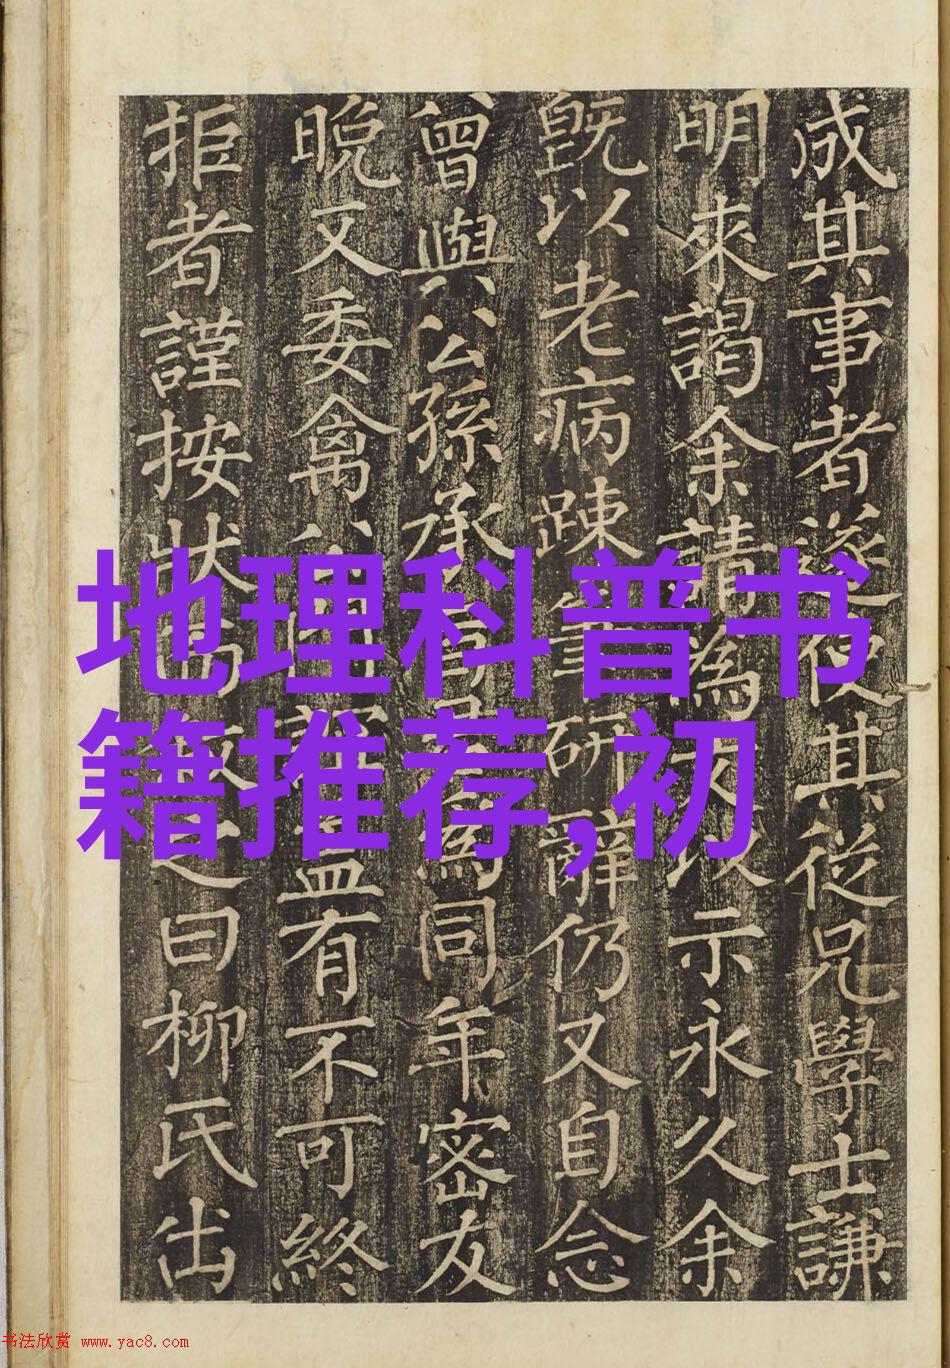 成其事者遂使其從兄學士謙
明來謁余請為文以示永久余
既以老病踈筆研辭仍又自念
曾與公孫承為同年密友
晚又委禽公有不可終
拒者謹按狀之曰柳氏出
地理科普书
籍推荐,初
书法欣赏 www.yac8.com